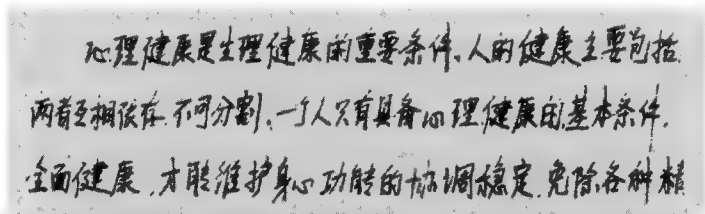 心理健康是生理健康的重要条件,人的健康主要包括
两者互相依存.不可分割,一个人只有具备心理健康的基本条件,
全面健康,才能维护身心功能的协调稳定.免除各种精